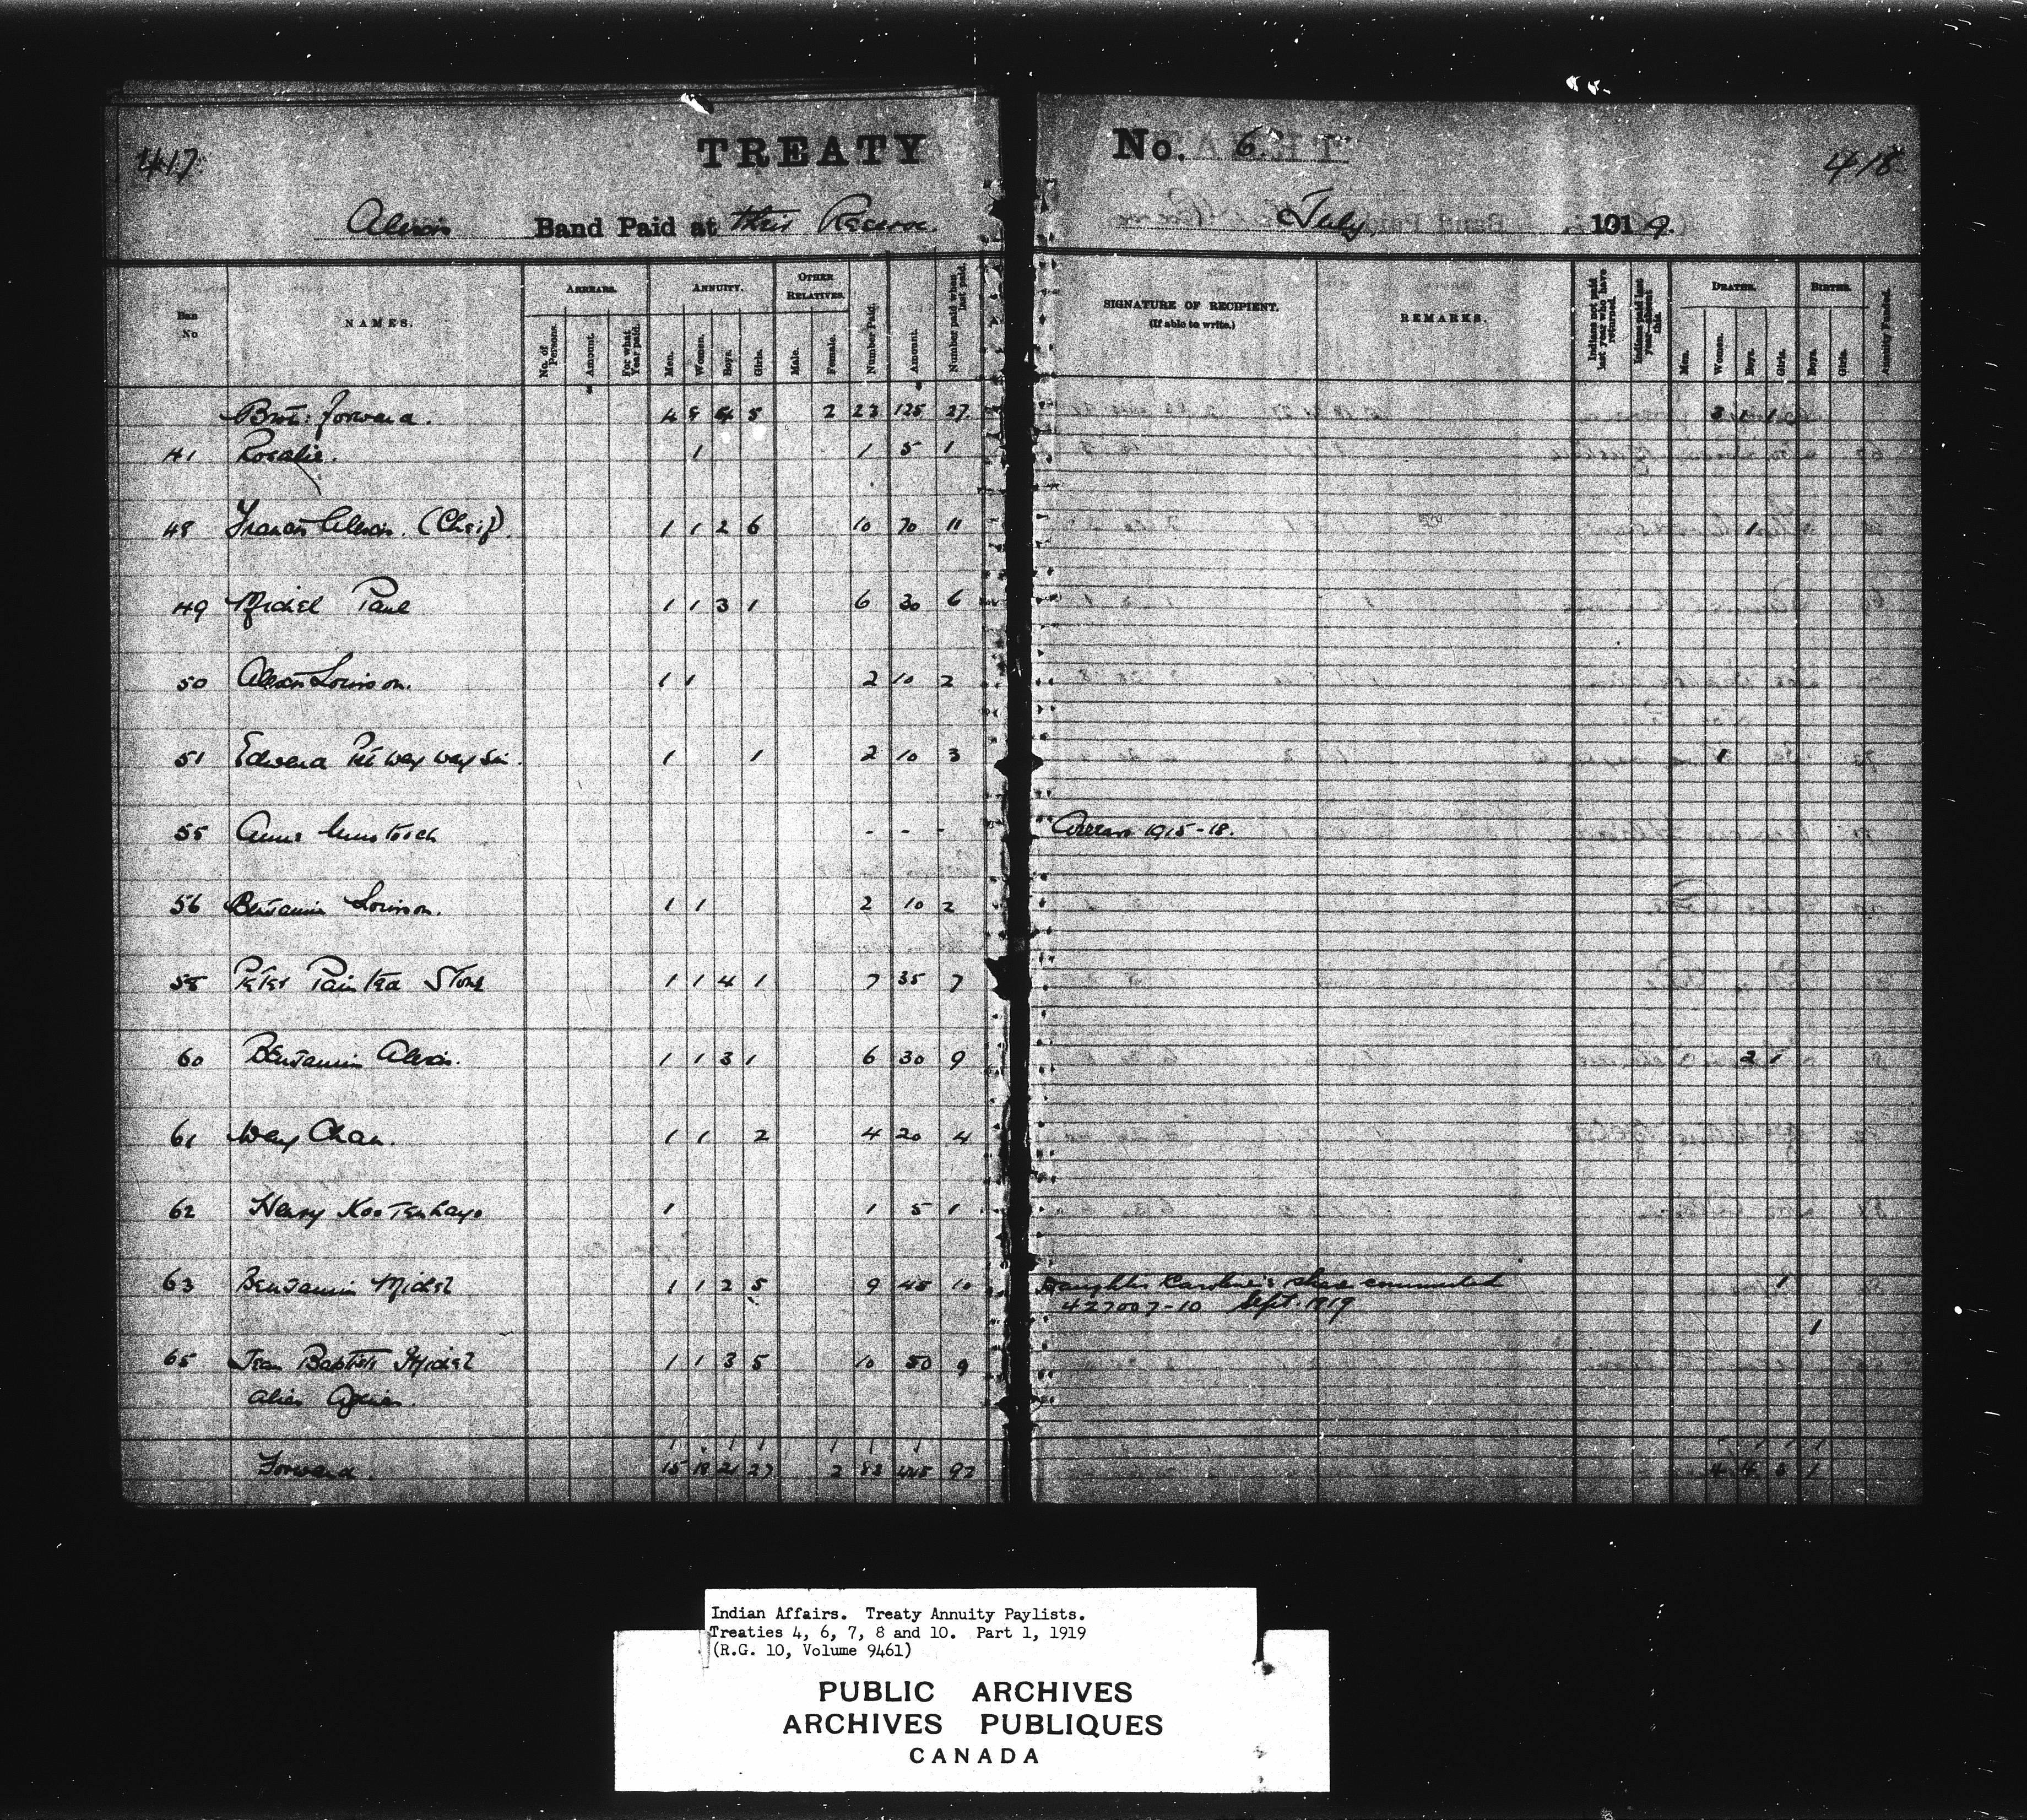 417.
TREATY No. 6.
418
Alexis Band Paid at their Reserve. July, 1919.
Ban No
NAMES.
ARREARS.
No. of Persons.
Amount.
For what Year paid.
ANNUITY.
Men.
Women.
Boys.
Girls.
OTHER RELATIVES.
Male.
Female.
Number Paid.
Amount.
Number paid when last paid.
SIGNATURE OF RECIPIENT.
(If able to write.)
REMARKS.
Indians not paid last year who have returned.
Indians paid last year—absent this.
DEATHS.
Men.
Women.
Boys.
Girls.
BIRTHS.
Boys.
Girls.
Annuity Funded.
Brot: forward. 4 8 4 5 2 23 125 27
41 Rosalie. 1 1 5 1
48 Francis Alexis. (Cheif). 1 1 2 6 10 70 11 1
49 Michel Paul 1 1 3 1 6 30 6
50 Alexis Louison. 1 1 2 10 2
51 Edward 1 1 2 10 3 1
55 - - - Arrears 1915-18.
56 Benjamin Louison. 1 1 2 10 2
58 Peter Painted Stone 1 1 4 1 7 35 7
60 Benjamin Alexis. 1 1 3 1 6 30 9 2 1
61 Way Chan. 1 1 2 4 20 4
62 Henry Kootenhayo 1 1 5 1
63 Benjamin Michel 1 1 2 5 9 45 10 Daughter Caroline's share commuted 1
427007-10 Sept. 1919
1
65 Jean Baptiste Michel 1 1 3 5 10 50 9
alias
Forward. 15 18 21 27 2 83 445 92 4 4 3 1
Indian Affairs. Treaty Annuity Paylists.
Treaties 4, 6, 7, 8 and 10. Part 1, 1919
(R.G. 10, Volume 9461)
PUBLIC ARCHIVES
ARCHIVES PUBLIQUES
CANADA